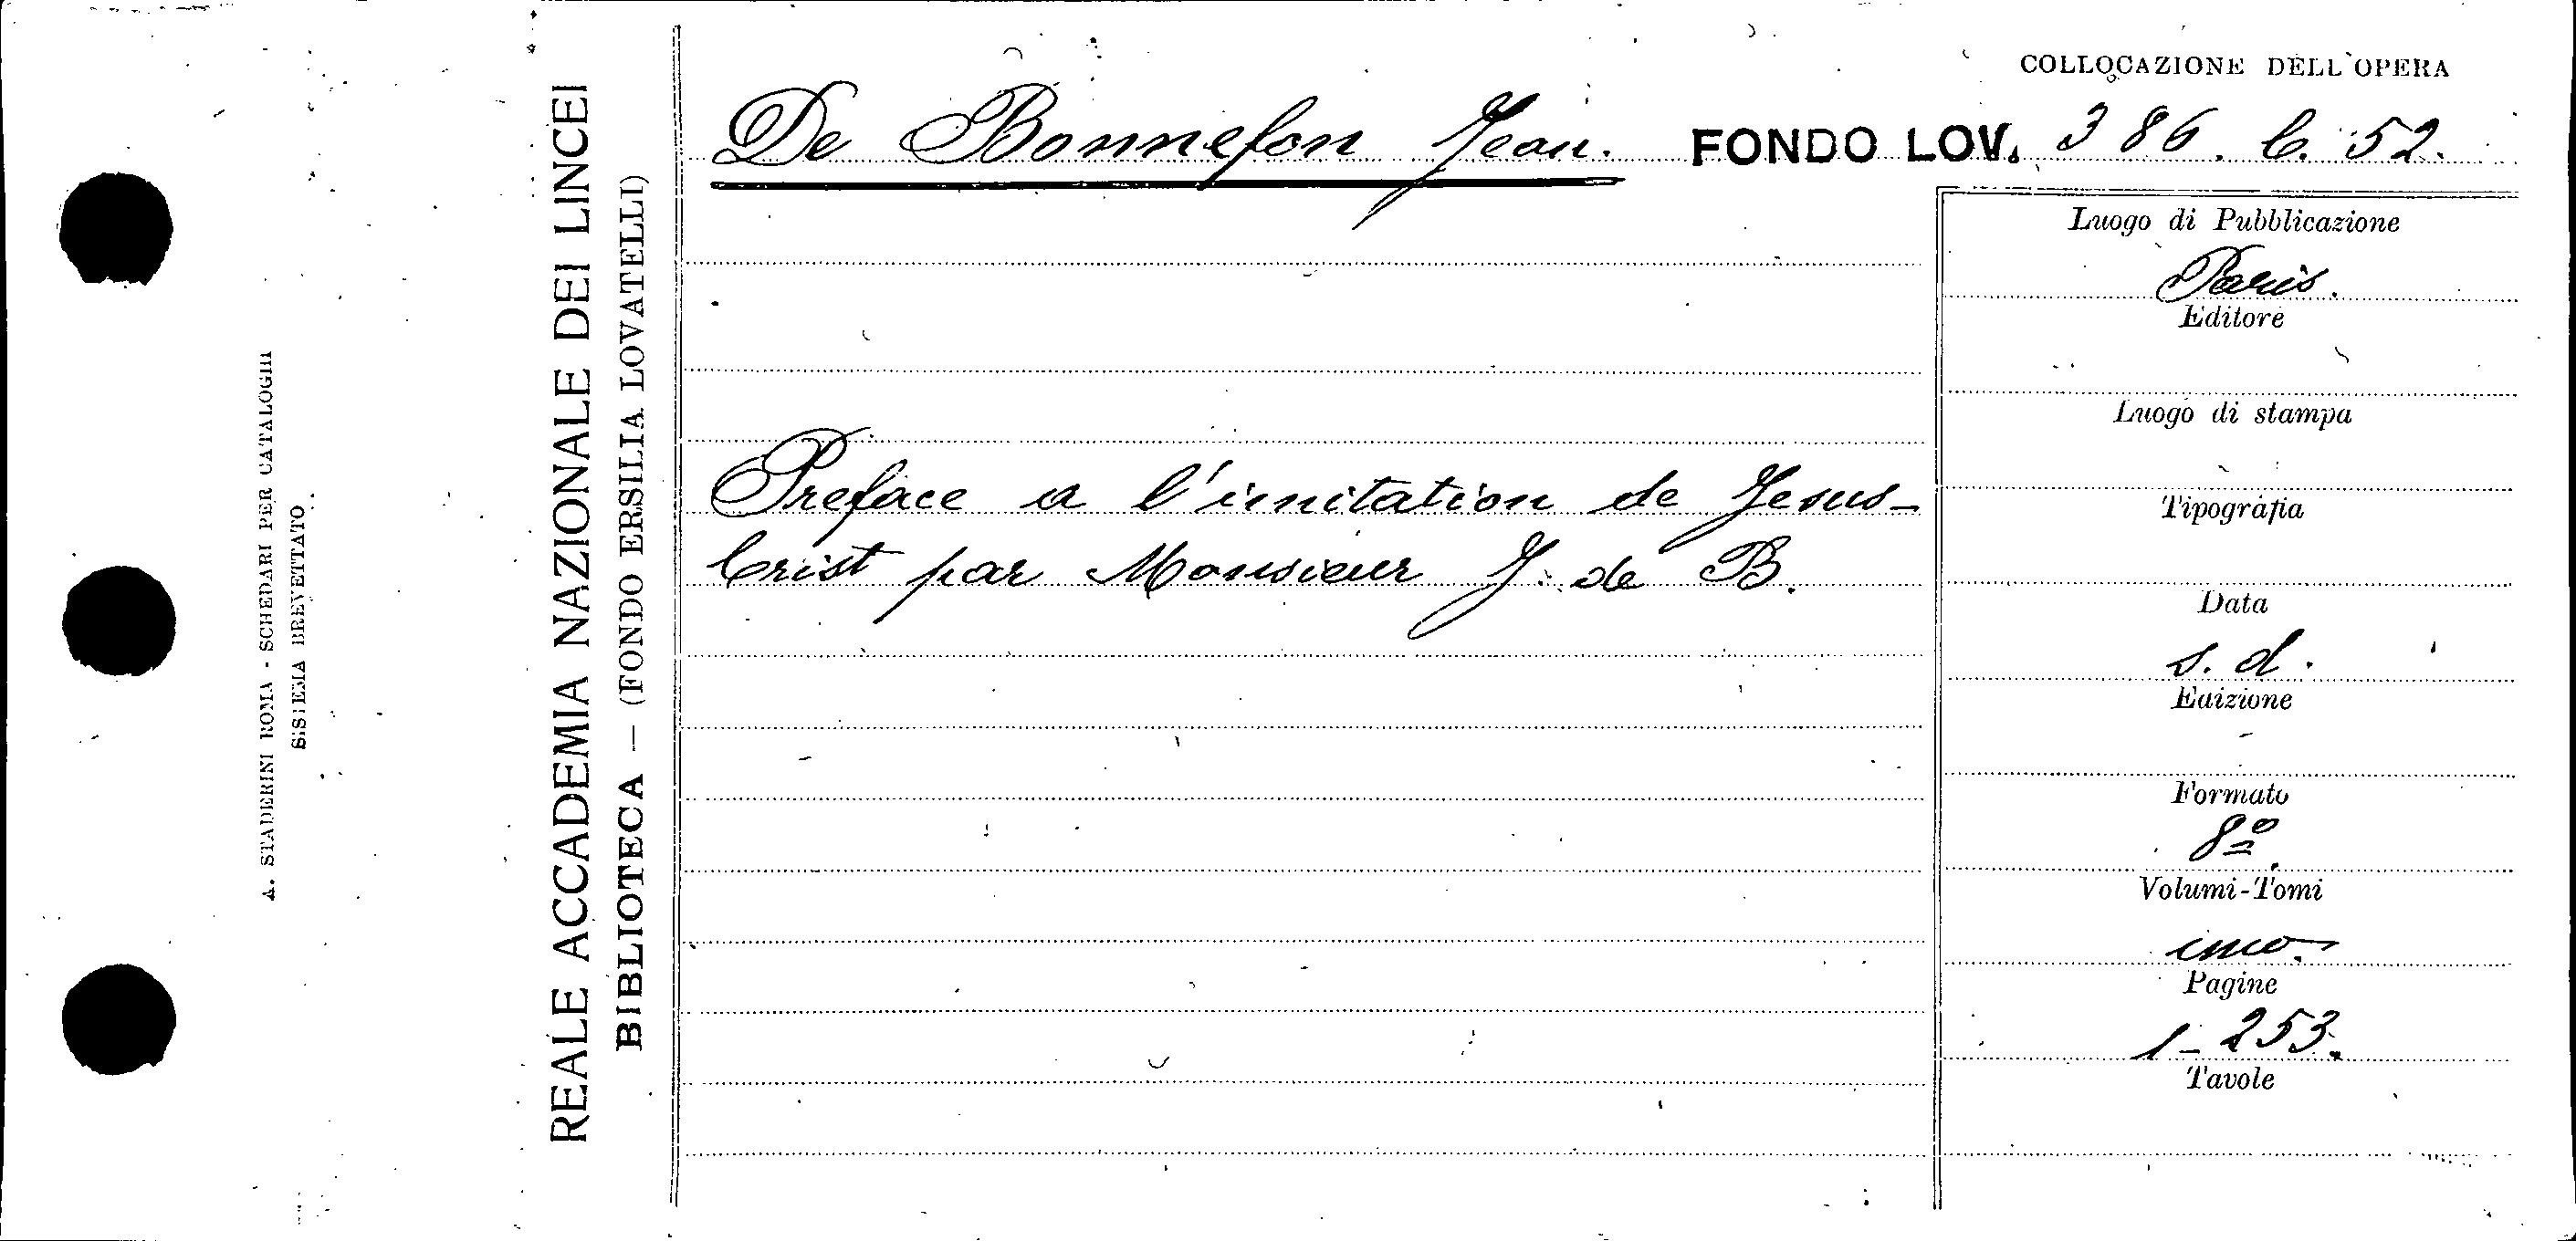 A. STADERINI ROMA - SCHEDARI PER CATALOGHI
SISTEMA BREVETTATO
REALE ACCADEMIA NAZIONALE DEI LINCEI
BIBLIOTECA — (FONDO ERSILIA LOVATELLI)
De Bonnefon Jean.
Preface a l'imitation de Jesus-
Crist par Monsieur J. de B.
COLLOCAZIONE DELL'OPERA
FONDO LOV. 386. b. 52.
Luogo di Pubblicazione
Paris.
Editore
Luogo di stampa
Tipografia
Data
s. d.
Edizione
Formato
8º.
Volumi-Tomi
uno.
Pagine
1-253.
Tavole